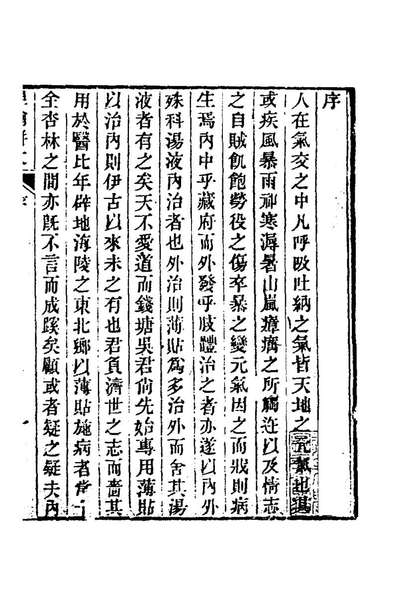 序
人在氣交之中凡呼吸吐納之氣皆天地之氣也
或疾風暴雨祁寒溽暑山嵐瘴癘之所觸迕以及情志
之自賊飢飽勞役之傷卒暴之變元氣因之而戕則病
生焉內中乎藏府而外發乎肢體治之者亦遂以內外
殊科湯液內治者也外治則薄貼為多治外而舍其湯
液者有之矣天不愛道而錢塘吳君尙先始專用薄貼
以治內則伊古以來未之有也君負濟世之志而嗇其
用於醫比年辟地海陵之東北鄉以薄貼施病者
全杏林之間亦旣不言而成蹊矣顧或者疑之疑夫內